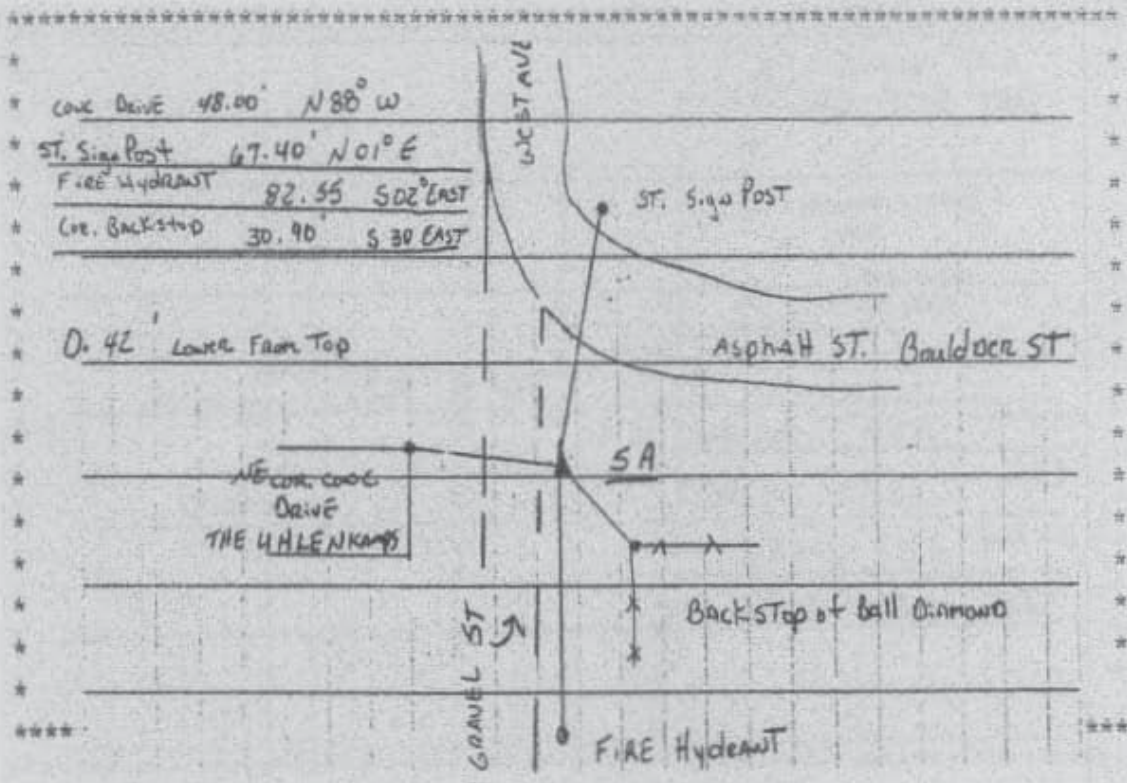 WEST AVE
CONC DRIVE 48.00' N 88° W
ST. Sign Post 67.40' N 01° E
FIRE HYDRANT 82.55 S 02° EAST
COR. BACKSTOP 30.90' S 30 EAST
ST. Sign POST
0.42' Lower From Top
ASPHAlt ST. Bouldoer ST
SA
NE COR. CONC
DRIVE
THE UHLENKAMPS
BACKSTOP of Ball DIAMOND
GRAVEL ST
FIRE HydRANT